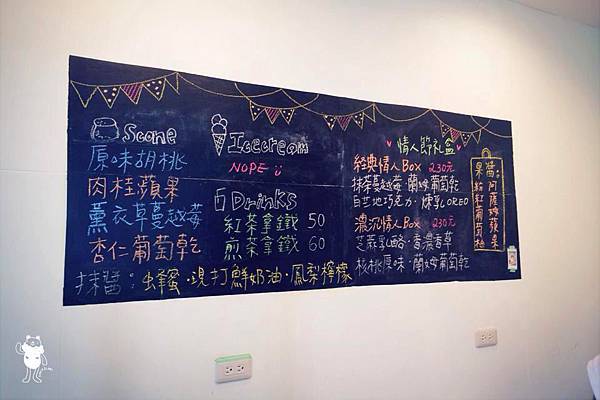 Scone
原味胡桃
肉桂蘋果
薰衣草蔓越莓
杏仁葡萄乾
抹醬：蜂蜜・現打鮮奶油・鳳梨檸檬
Icecream
NOPE
Drinks
紅茶拿鐵 50
煎茶拿鐵 60
情人節礼盒
經典情人Box 230元
抹茶蔓越莓・蘭姆葡萄乾
自芒地巧克力・煉乳OREO
濃沉情人Box 230元
芝蔴乳酪・香濃香草
核桃原味・蘭姆葡萄乾
果醬：阿薩姆蘋果
粉紅葡萄柚